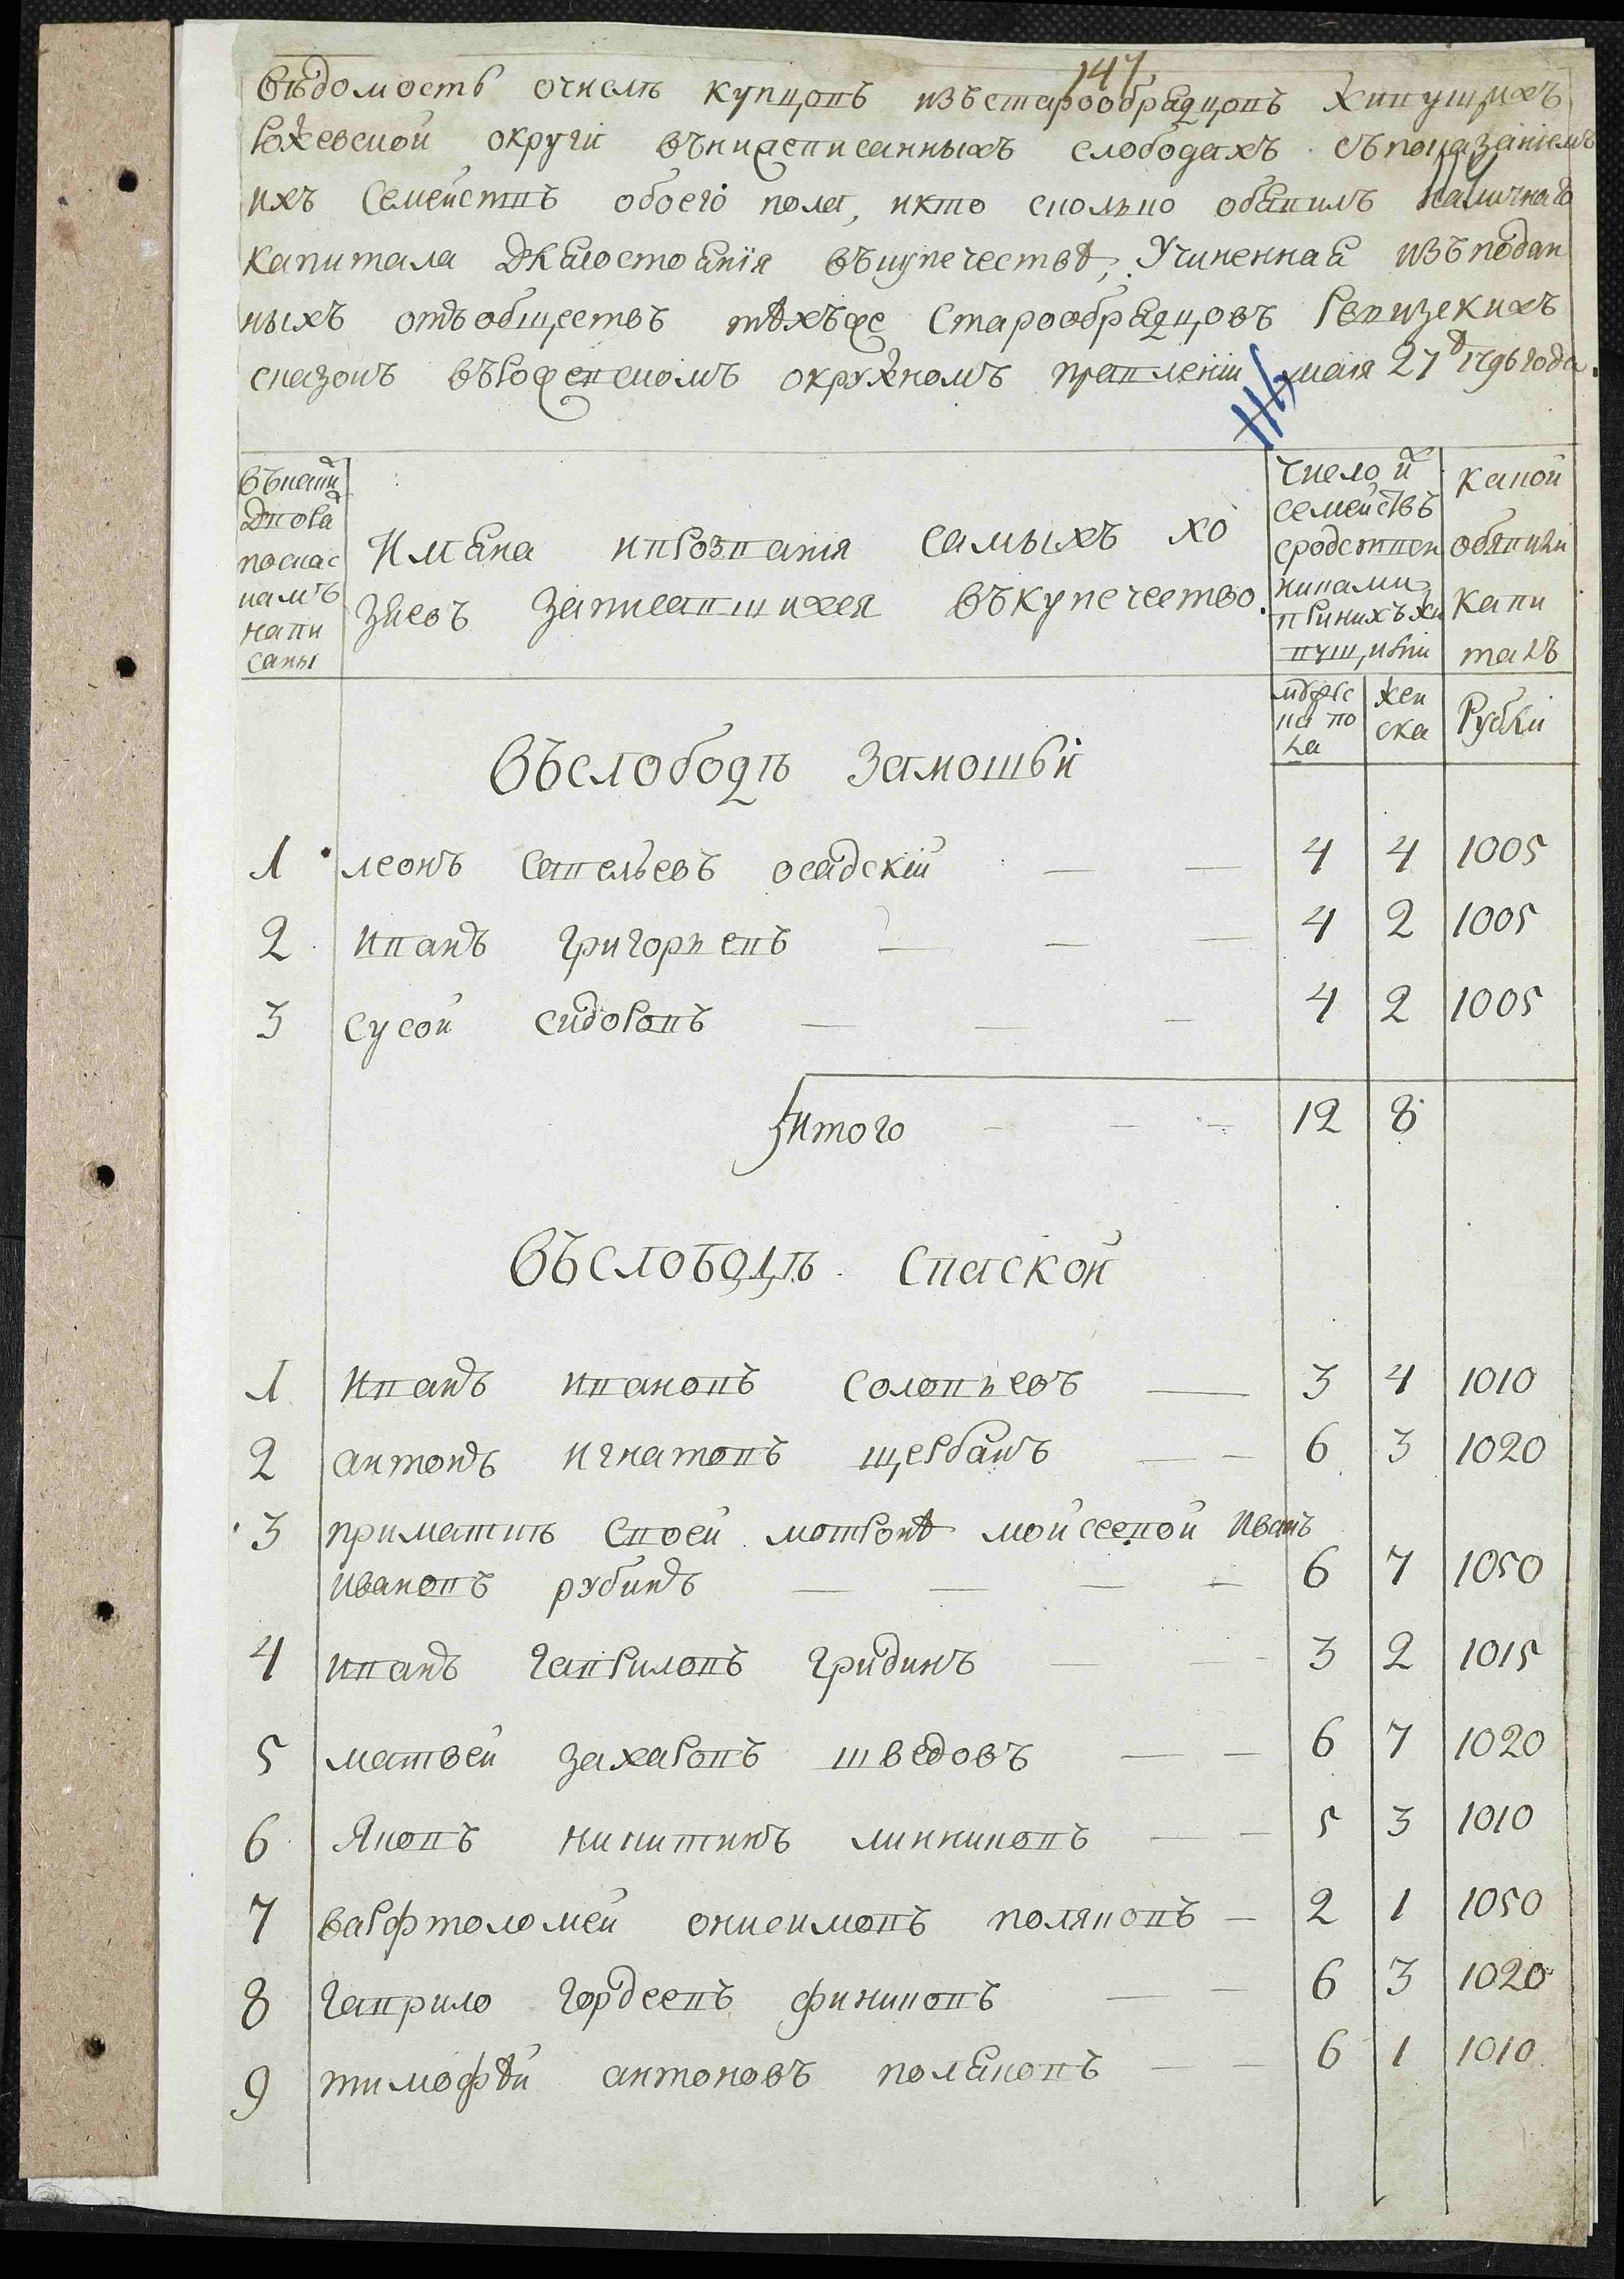 147
Вѣдомость очислѣ купцовъ изъстарообрядцовъ живущихъ
Рожевской округи въниже писанныхъ слободахъ съпоказаніемъ
ихъ Семействъ обоего пола, икто сколько обявилъ наличнаго
капитала Длясостоянія въкупечествѣ, Учиненная изъподан
ныхъ отъобществъ тѣхъже Старообрядцовъ Ревизскихъ
сказокъ върожевскомъ окружномъ правленіи маія 27 д 1796 года.
въкаки
Дворѣ
посказ
камъ
напи
саны
Имяна ипрозванія самыхъ хо
зяевъ записавшихся въкупечество.
число и
семействъ
сродствен
никами
принихъ жи
вущими
какой
обявили
капи
талъ
мужес
ка по
ла
жен
ска
Рубли
Въслободѣ Замошьи
1 леонъ Савельевъ осадскій — — 4 4 1005
2 иванъ григорьевъ — — — 4 2 1005
3 сусой сидоровъ — — — 4 2 1005
Итого — — — 12 8
Въслободѣ Спаской
1 Иванъ ивановъ соловьевъ — 3 4 1010
2 антонъ игнатовъ щербакъ — — 6 3 1020
3 приматитѣ своей мотронѣ мойсеевой Иванъ
ивановъ рубинъ — — — — 6 7 1050
4 иванъ гавриловъ гридинъ — — 3 2 1015
5 матвеи захаровъ шведовъ — — 6 7 1020
6 Яковъ никитинъ линниковъ — — 5 3 1010
7 варфтоломей онисимовъ поляковъ — 2 1 1050
8 гаврило гордеевъ финиковъ — — 6 3 1020
9 тимофѣй антоновъ поляковъ — — 6 1 1010